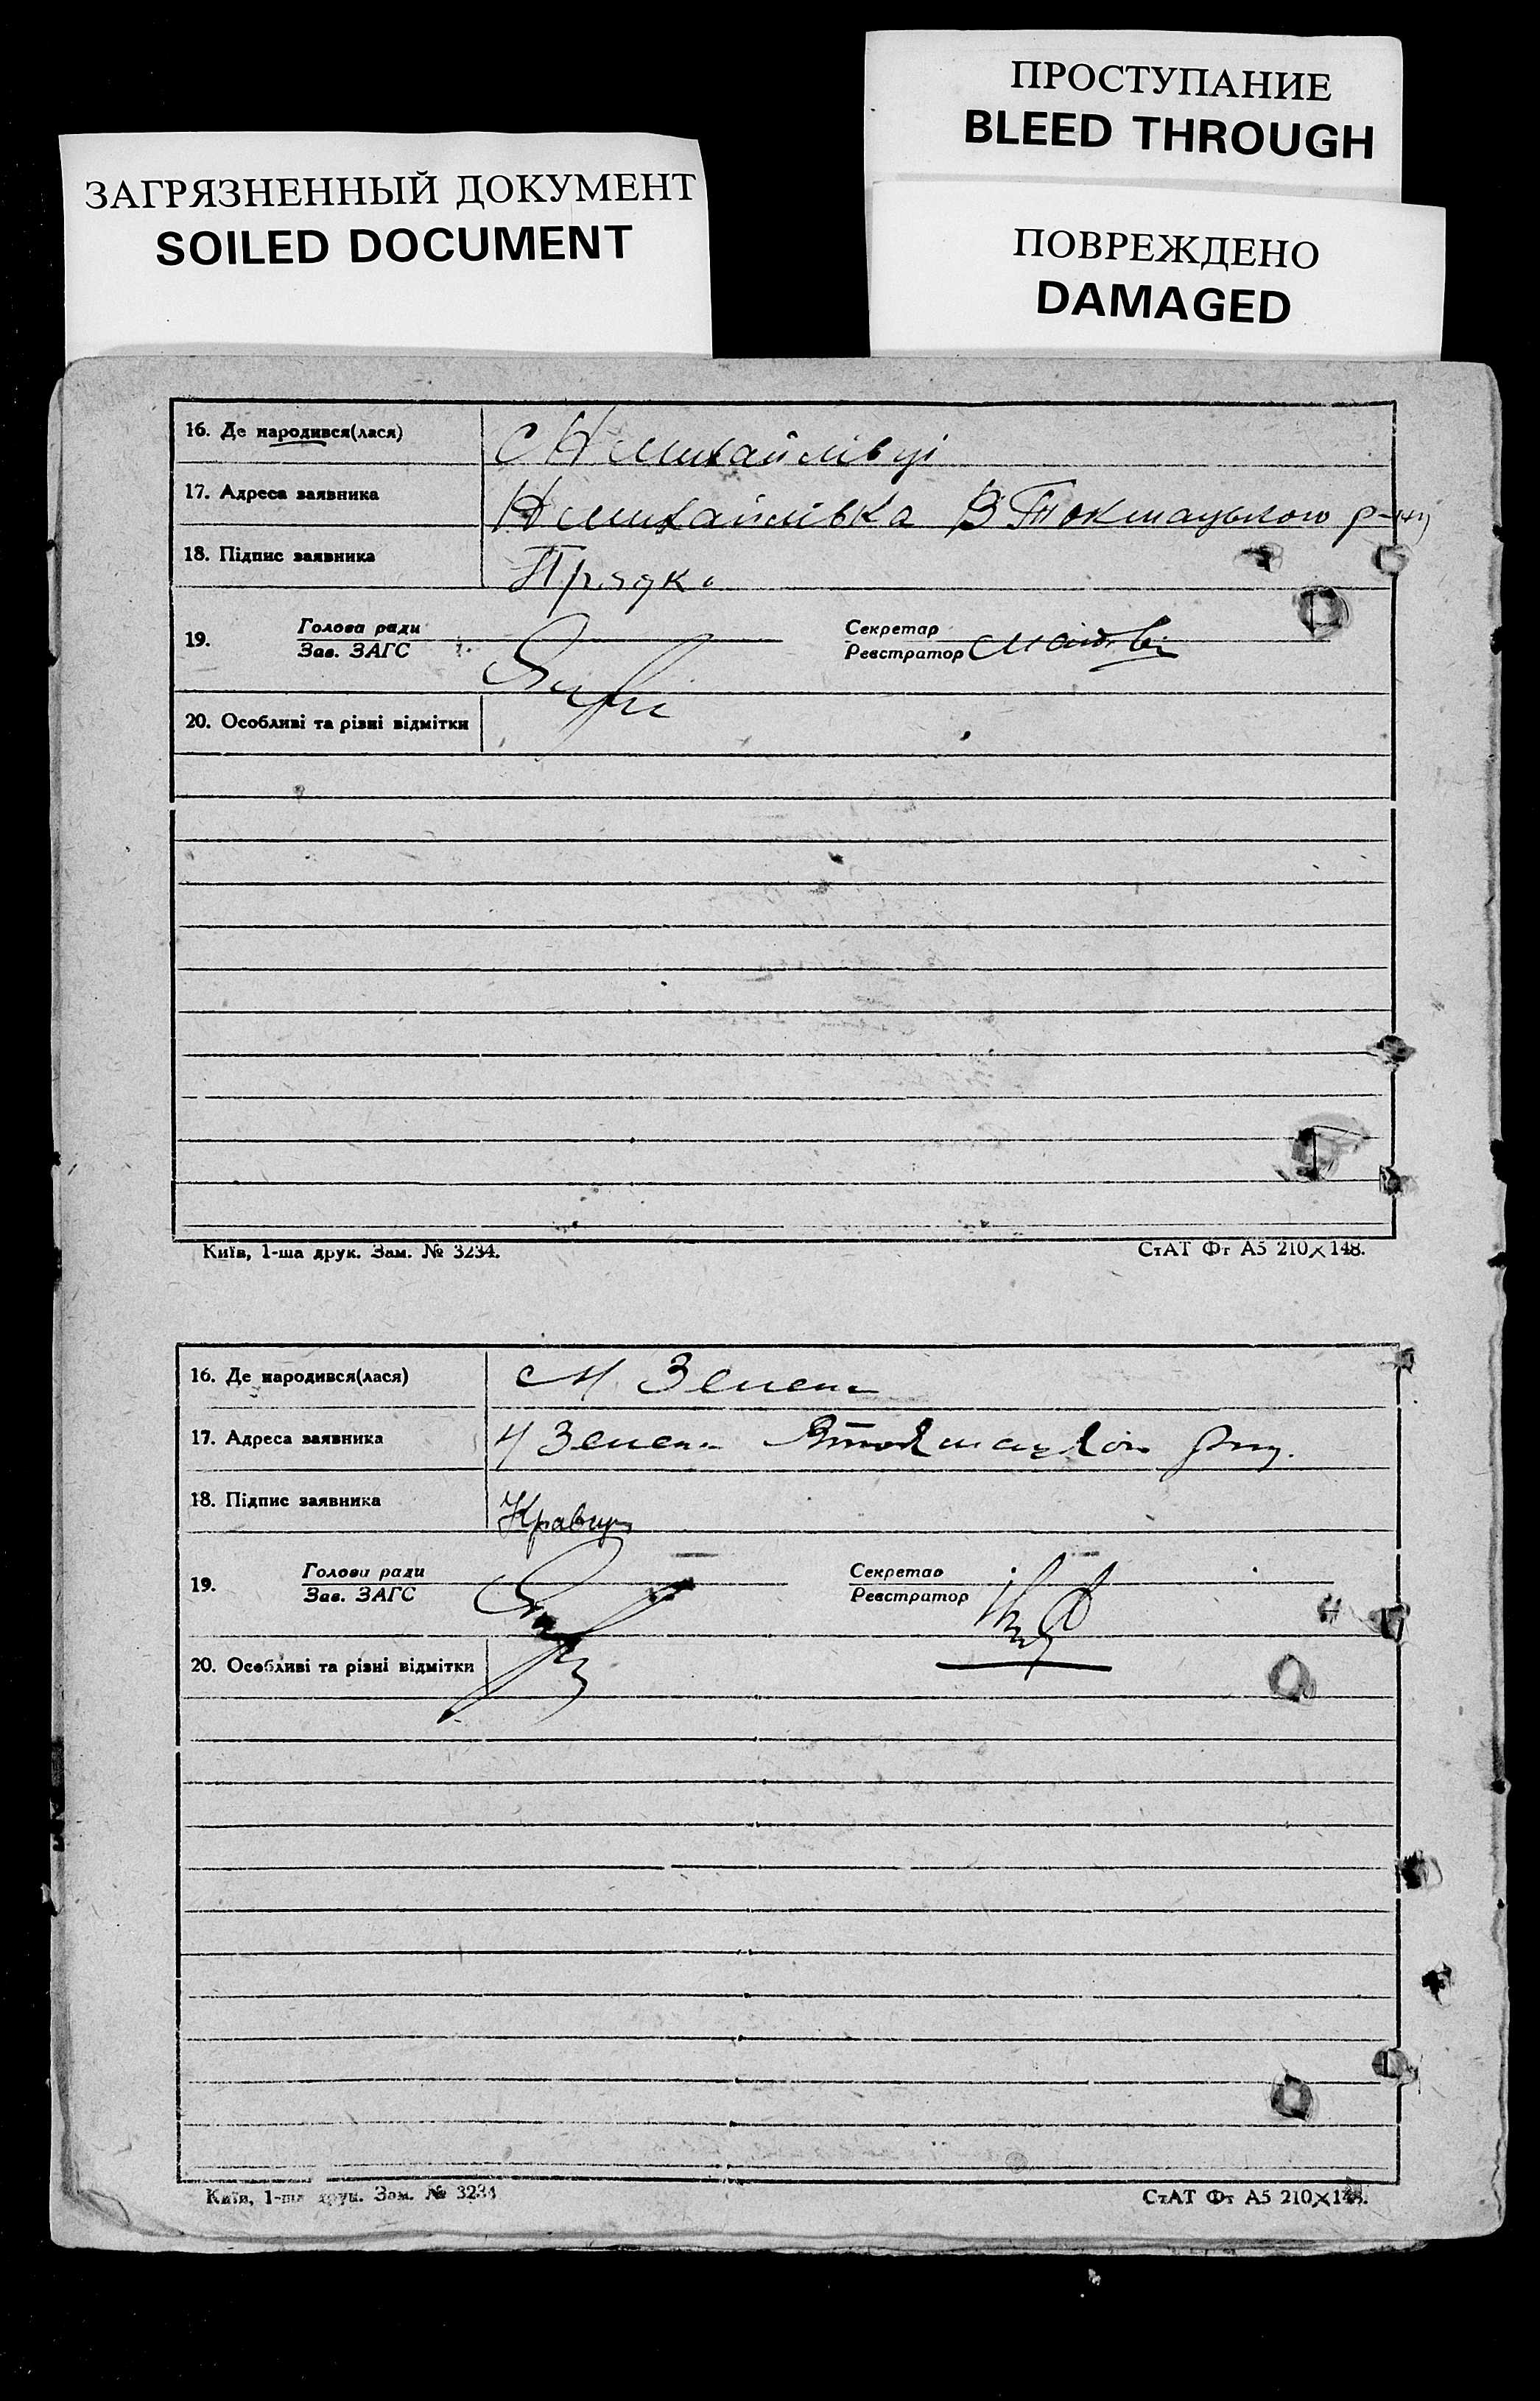 ПРОСТУПАНИЕ
BLEED THROUGH
ЗАГРЯЗНЕННЫЙ ДОКУМЕНТ
SOILED DOCUMENT
ПОВРЕЖДЕНО
DAMAGED
16. Де народився(лася) с Н Михайлівці
17. Адреса заявника Н Михайлівка В Токмацького р-ну
18. Підпис заявника Прядко
19. Голова ради Секретар
Зав. ЗАГС Реєстратор
20. Особливі та різні відмітки
Київ, 1-ша друк. Зам. № 3234. СтАТ Фт А5 210×148.
16. Де народився(лася) Зелена
17. Адреса заявника Зелена
18. Підпис заявника Кравец
19. Голова ради Секретар
Зав. ЗАГС Реєстратор
20. Особливі та різні відмітки
Київ, 1-ша друк. Зам. № 3234 СтАТ Фт А5 210×148.